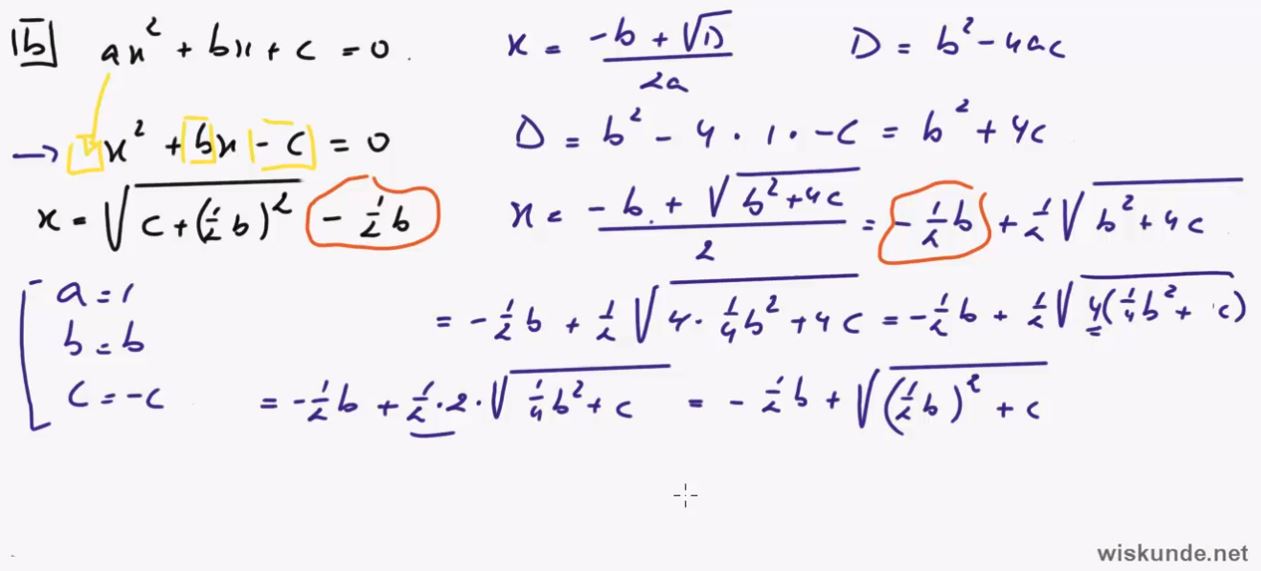 1b ax² + bx + c = 0. x = (-b + √D)/2a D = b² - 4ac
→ x² + bx - c = 0 D = b² - 4 · 1 · -c = b² + 4c
x = √(c + (½b)²) - ½b x = (-b + √(b² + 4c))/2 = -½b + ½√(b² + 4c)
a = 1
b = b
c = -c
= -½b + ½√(4 · ¼b² + 4c) = -½b + ½√(4(¼b² + c))
= -½b + ½ · 2 · √(¼b² + c) = -½b + √((½b)² + c)
wiskunde.net